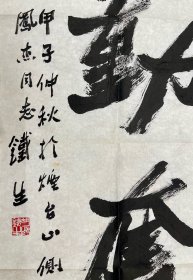 動
奮
甲子仲秋於煙台山側
鳳杰同志 鐵生